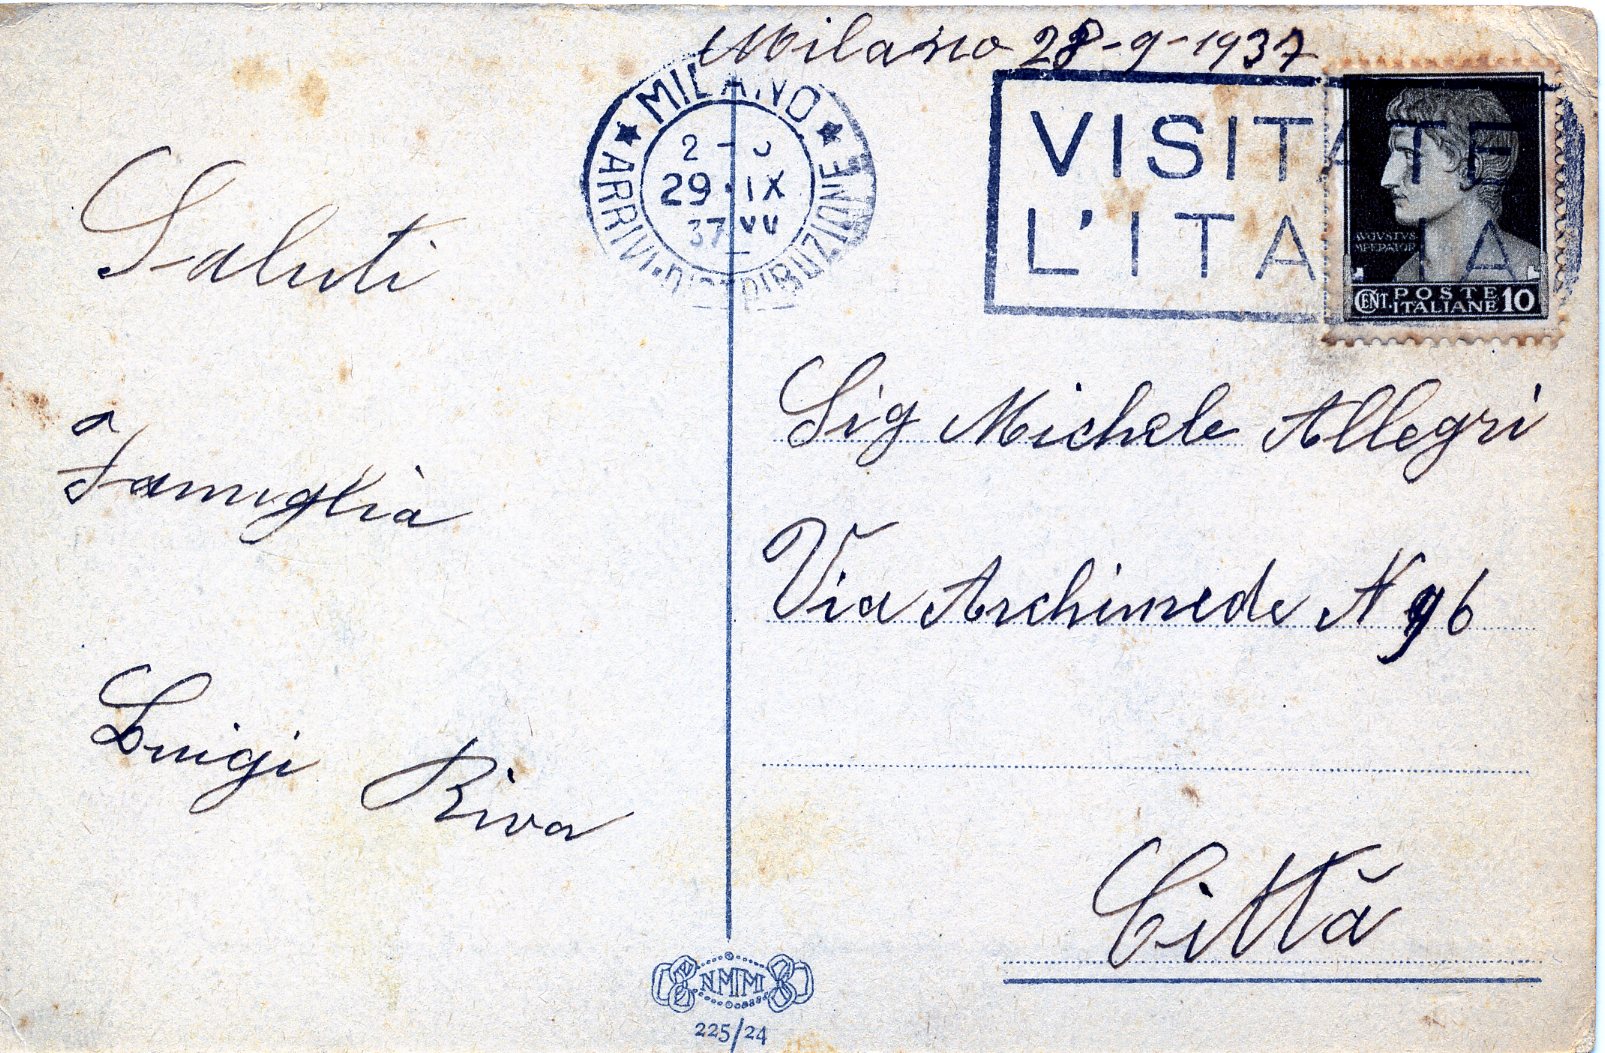 Milano 28-9-1937
MILANO
29·IX
37 XV
ARRIVI·DISTRIBUZIONE
VISITATE
L'ITALIA
AVGVSTVS
IMPERATOR
CENT. POSTE ITALIANE 10
Saluti
a
Famiglia
Luigi Riva
Sig Michele Allegri
Via Archimede N 96
Città
NMM
225/24